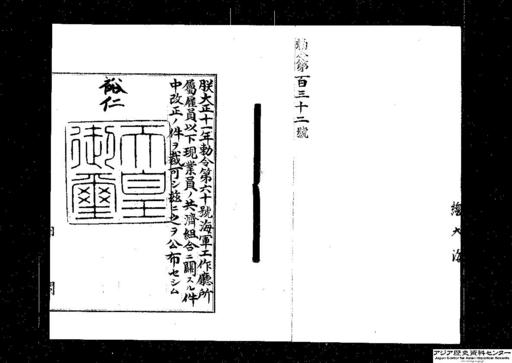 勅令第百三十二號
總 大 海
朕大正十一年勅令第六十號海軍工作廳所
屬雇員以下現業員ノ共濟組合ニ關スル件
中改正ノ件ヲ裁可シ茲ニ之ヲ公布セシム
裕仁
天皇
御璽
内 閣
アジア歴史資料センター
Japan Center for Asian Historical Records